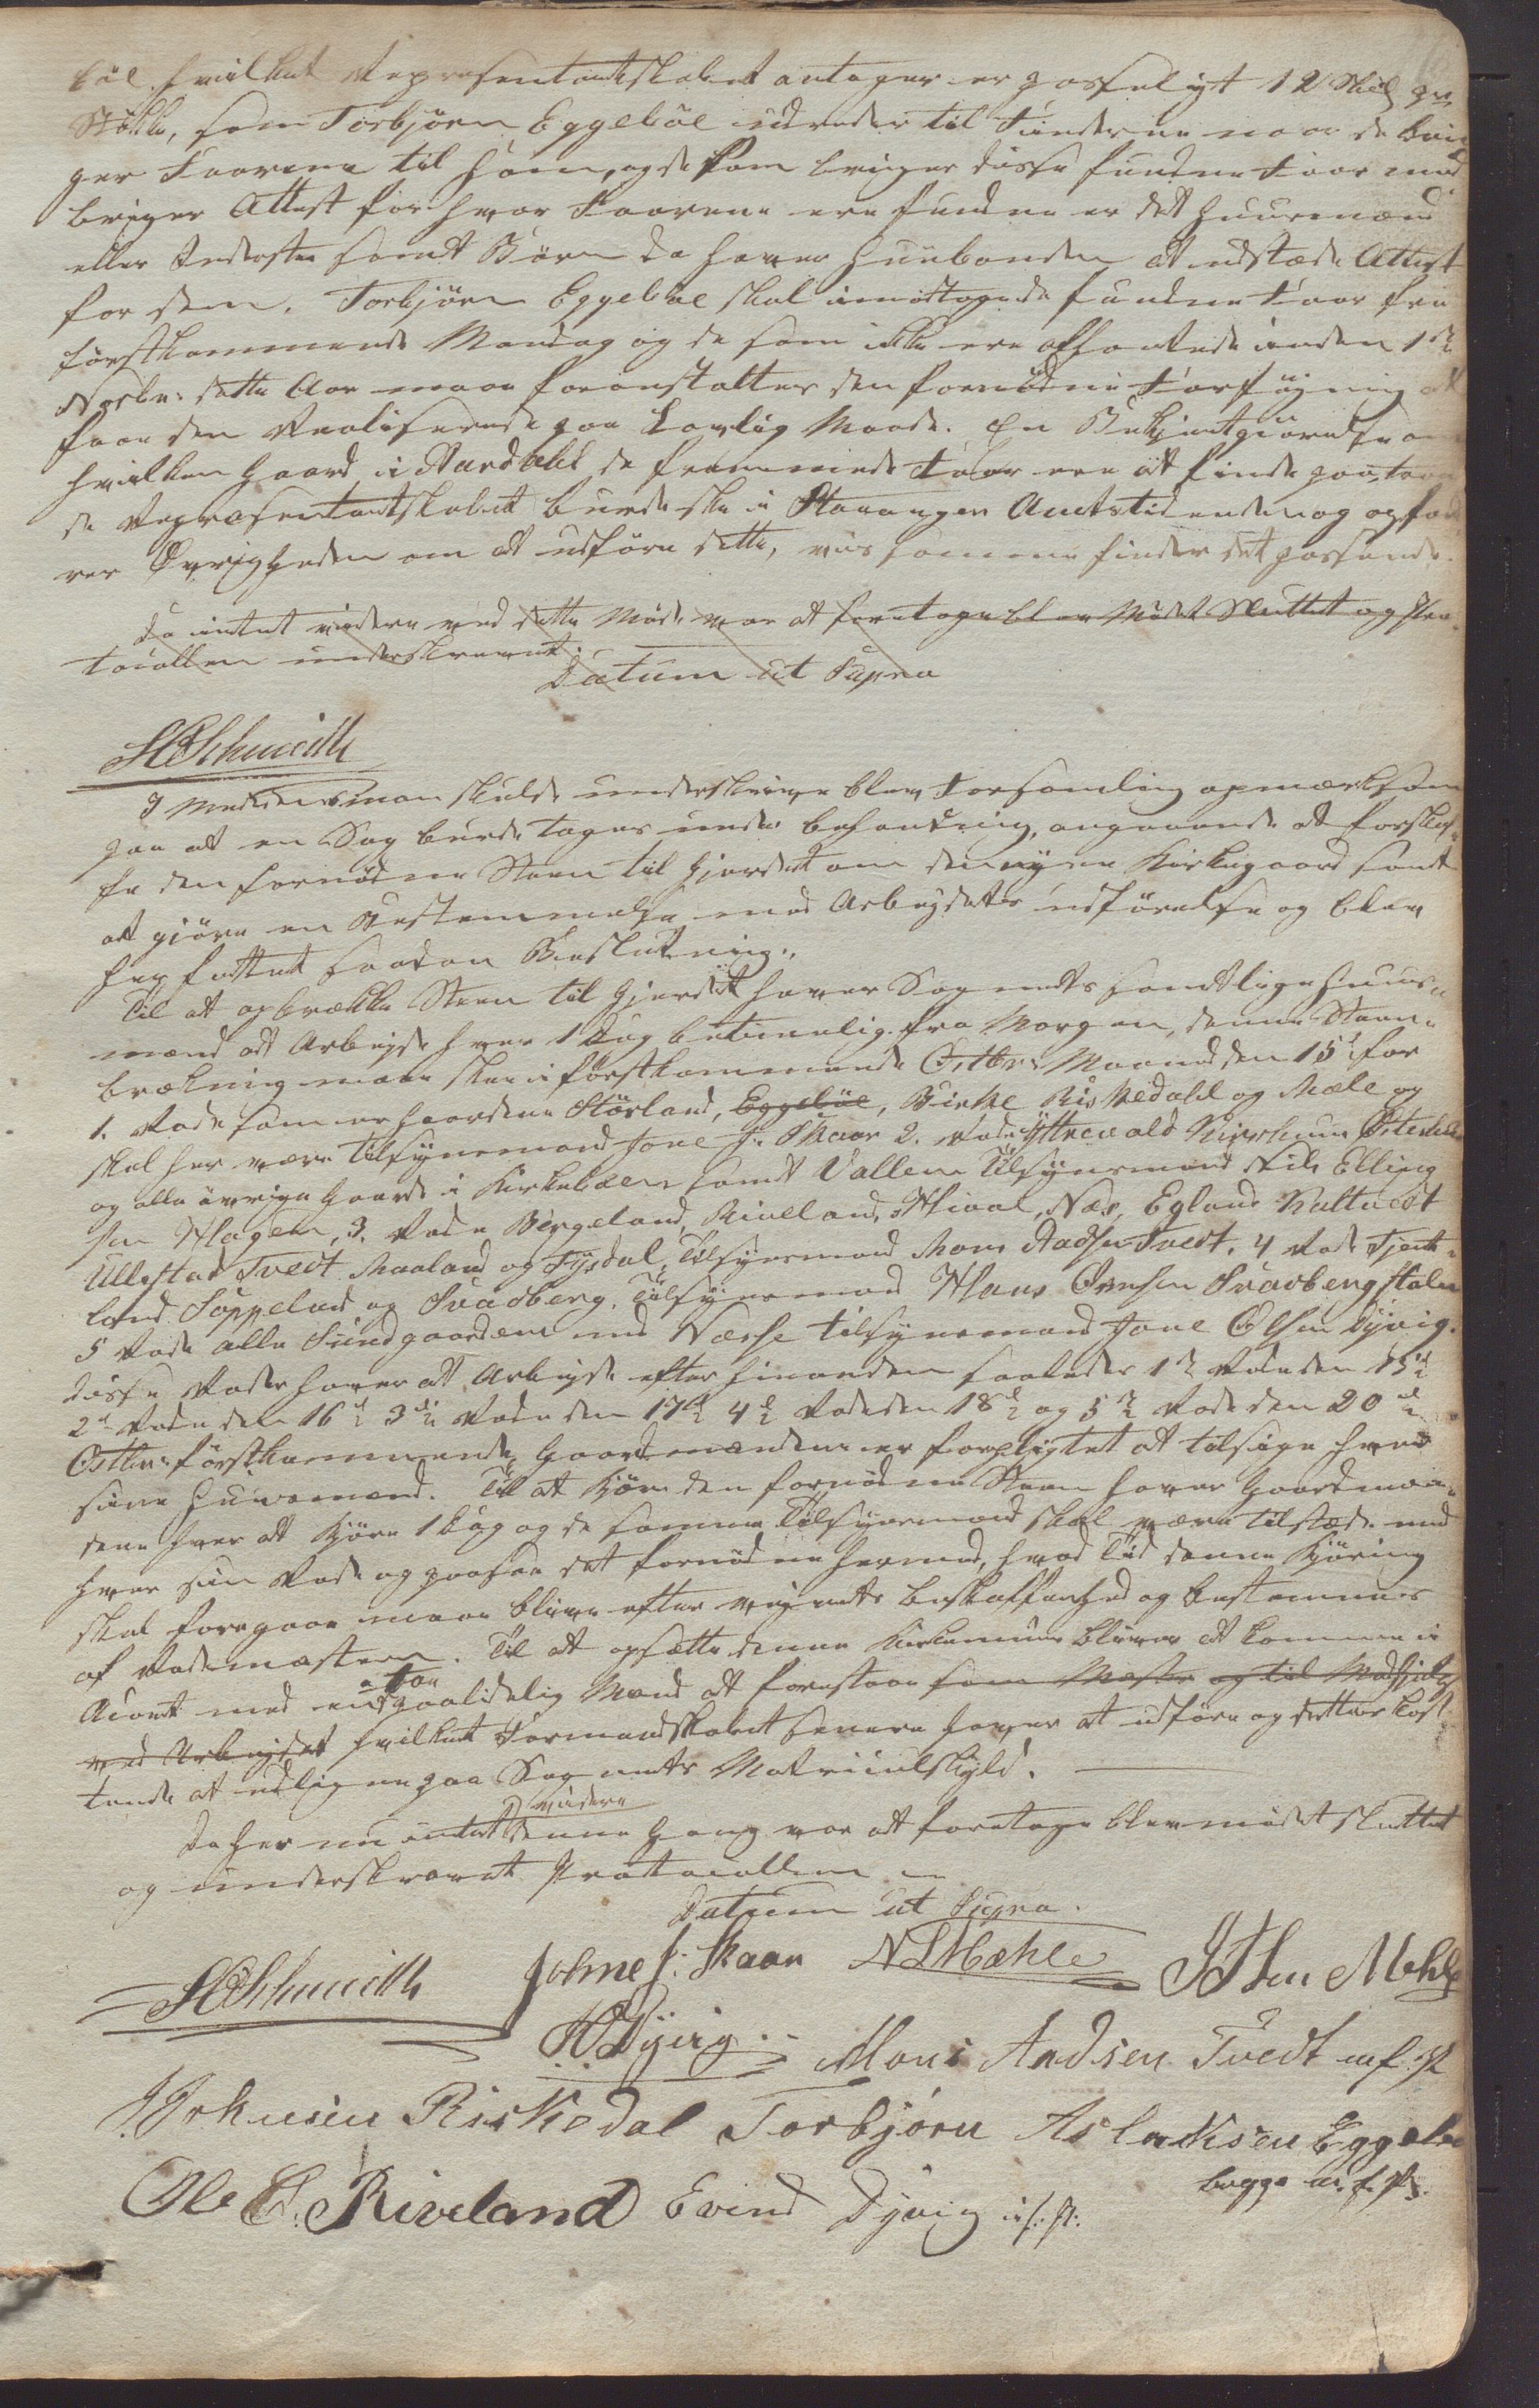 böe hvilket Repræsentantskabet antager er passeligt 12 Skil pr
Stökke, som Torbjörn Eggeböe udreder til Finderne naar de brin
ger Faarene til ham, og de som bringer disse fundne Faar med
bringer Attest for hvor Faarene ere fundne er det Huusmænd
eller Inderster samt Börn da haver Huusbonden at udstæde Attest
for dem. Torbjörn Eggeböe skal imodtage de fundne Faar fra
förstkommende Mandag og de som ikke ere afhentede inden 1ste
Novbr: dette Aar maae foranstaltes den fornödne Forföyning at
faae dem Realiserede paa Lovlig Maade. En Bekjentgiörelse om
hvilken Gaard i Aardahl de fremmede Faar ere at finde paa,
de Repræsentantskabet burde ske i Stavanger Amtstidende og opford
rer Övrigheden om at udföre dette, vis samme finder det passende.
Da intet videre ved dette Möde var at foretage blev Mödet Sluttet og Pro
tocollen underskrevet.
Datum ut Supra
HCSchmidth
I Medens man skulde underskrive blev Forsamling opmærksom
paa at en Sag burde tages under behandling, angaaende at forskaf
fe den fornödne Steen til Gjerdet om den nye Kirkegaard samt
at gjöre en Bestemmelse med Arbeydets udförelse og blev
her fattet saadan Beslutning.
Til at opbrække Steen til Gjerdet haver Sognets samtlige Huus-
mænd at Arbeyde hver 1 Dag betimelig fra Morgen, denne Steen-
brækning maae skee i förstkommende Octbr: Maaned den 15de for
1. Rode som er Gaardene Störland, Eggeböe, Virke Riskedahl og Mæle og
skal her være Tilsynsmand Jone J. Skaar 2. Rode Yttrevold
og alle övrige Gaarde i Kirkeböen samt Vallem Tilsynsmand Nils Elling
sen Hagen, 3. Rode Bergeland, Riveland, Hiaal, Næs, Egland Kaltvedt
Ullestad Tvedt Maaland og Tysdal, Tilsynsmand Mons Aadsen Tvedt. 4 Rode Fjent-
land Soppeland og Svadberg, Tilsynsmand Hans Svadberg
5 Rode alle Sundgaardene med Næsse tilsynsmand Jone Olsen Dyvig.
disse Roder haver at Arbeyde efter hinanden saaledes 1te Rode den 15de
2d Rode den 16de 3die Rode den 17de 4de Rode den 18de og 5te Rode den 20de
Octbr: förstkommende, Gaardmændene er forpligtet at tilsige hver
sine Huusmænd. Til at Kjöre den fornödne Steen haver Gaardmæn-
dene hver at Kjöre 1 Dag og de samme Tilsynsmænd skal være tilstæde med
hver sin Rode og paasee det fornödne hermed, hvad Tid denne Kjöring
skal foregaae maae blive efter veyrets beskaffenhed og bestemmes
af Rodemesteren. Til at opsætte denne Kirkemuur bliver at komme i
Acort med en a to paalidelig Mænd at forestaae som Mester og til Medhjelp
ved Arbeydet hvilket Formandskabet senere haver at udföre og dettes Kost-
ende at udlignes paa Sognets Matriculskyld.
Da her nu intet videre denne Gang var at foretage blev mödet sluttet
og underskrevet Protocollen
Datum ut Supra.
HCSchmidth Johne J: Skaar N L Mæhle
Mehle
HDyvig Mons Andsen Tvedt m f P
Riskedal Torbjörn Aslaksen Eggebö
begge m. f. P.
Ole E. Riveland Evind Dyvig